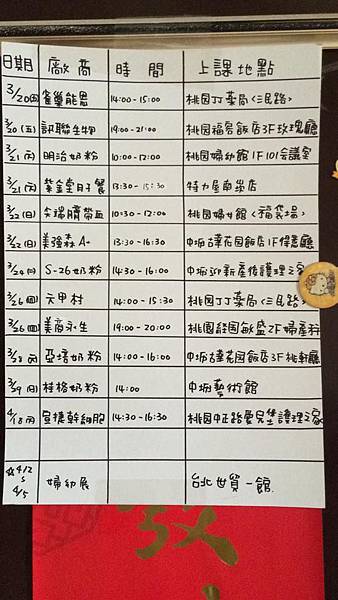 日期 廠商 時間 上課地點
3/20(五) 雀巢能恩 14:00-15:00 桃园丁丁藥局<三民路>
3/20(五) 訊聯生物 19:00-21:00 桃园福容飯店3F玫瑰廳
3/21(六) 明治奶粉 10:00-12:00 桃園婦幼館1F101会議室
3/21(六) 紫金堂月子餐 13:30-15:30 特力屋南崁店
3/22(日) 尖端臍帶血 10:30-12:00 桃園婦女館<福袋場>
3/22(日) 美強森A+ 13:30-16:30 中壢古華花园飯店1F
3/24(二) S-26奶粉 14:30-16:00 中壢 新產後護理之家
3/26(四) 六甲村 14:00-15:30 桃园丁丁藥局<三民路>
3/26(四) 美商永生 19:00-20:00 桃園 敏盛2F婦產科
3/28(六) 亞培奶粉 14:00-16:00 中壢古華花园飯店3F桃軒廳
3/29(日) 桂格奶粉 14:00 中壢藝術館
4/18(六) 宣捷幹細胞 14:30-16:30 桃园中正路愛兒堡護理之家
☆4/2
5
4/5 婦幼展 台北世貿一館